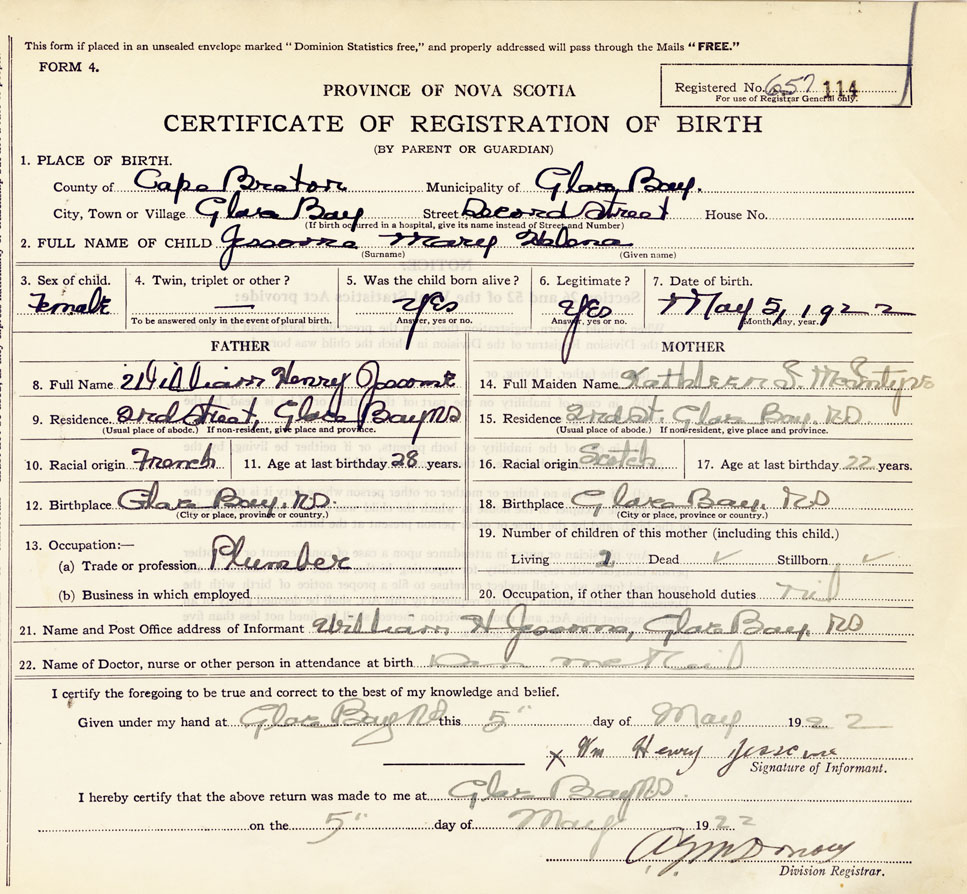 This form if placed in an unsealed envelope marked "Dominion Statistics free," and properly addressed will pass through the Mails "FREE."
FORM 4.
Registered No. 657 114
For use of Registrar General only.
PROVINCE OF NOVA SCOTIA
CERTIFICATE OF REGISTRATION OF BIRTH
(BY PARENT OR GUARDIAN)
1. PLACE OF BIRTH.
County of Cape Breton Municipality of Glace Bay.
City, Town or Village Glace Bay Street Second Street House No.
(If birth occurred in a hospital, give its name instead of Street and Number)
2. FULL NAME OF CHILD Jessome Mary Helena
(Surname) (Given name)
3. Sex of child. 4. Twin, triplet or other? 5. Was the child born alive? 6. Legitimate? 7. Date of birth.
Female — Yes Yes May 5, 1922
To be answered only in the event of plural birth. Answer, yes or no. Answer, yes or no. Month, day, year.
FATHER MOTHER
8. Full Name William Henry 14. Full Maiden Name Kathleen S. McIntyre
9. Residence 2nd Street, Glace Bay NS 15. Residence 2nd St. Glace Bay. NS
(Usual place of abode.) If non-resident, give place and province. (Usual place of abode.) If non-resident, give place and province.
10. Racial origin French 11. Age at last birthday 28 years. 16. Racial origin Scotch 17. Age at last birthday 22 years.
12. Birthplace Glace Bay. NS 18. Birthplace Glace Bay. NS
(City or place, province or country.) (City or place, province or country.)
19. Number of children of this mother (including this child.)
13. Occupation:—
(a) Trade or profession Plumber Living 2 Dead ✓ Stillborn ✓
(b) Business in which employed 20. Occupation, if other than household duties nil
21. Name and Post Office address of Informant William H Jessome, Glace Bay. NS
22. Name of Doctor, nurse or other person in attendance at birth
I certify the foregoing to be true and correct to the best of my knowledge and belief.
Given under my hand at Glace Bay NS this 5" day of May 1922
x Wm Henry Jessome
Signature of Informant.
I hereby certify that the above return was made to me at Glace Bay NS.
on the 5" day of May 1922
Division Registrar.